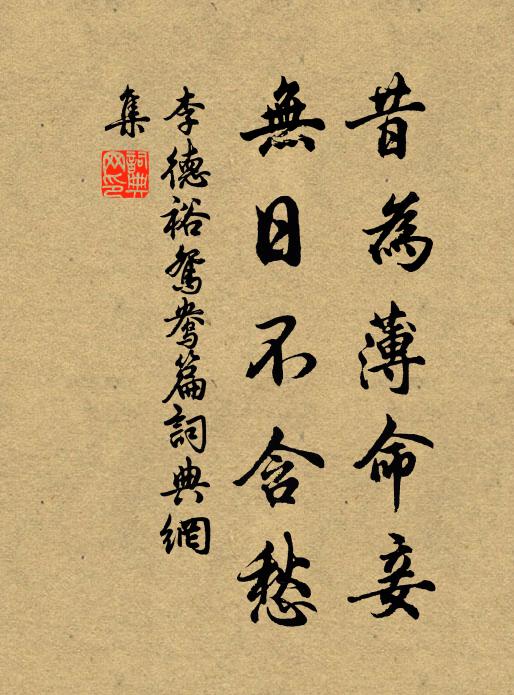 昔為薄命妾
無日不含愁
李德裕鴛鴦篇詞典網
集
詞典
网印